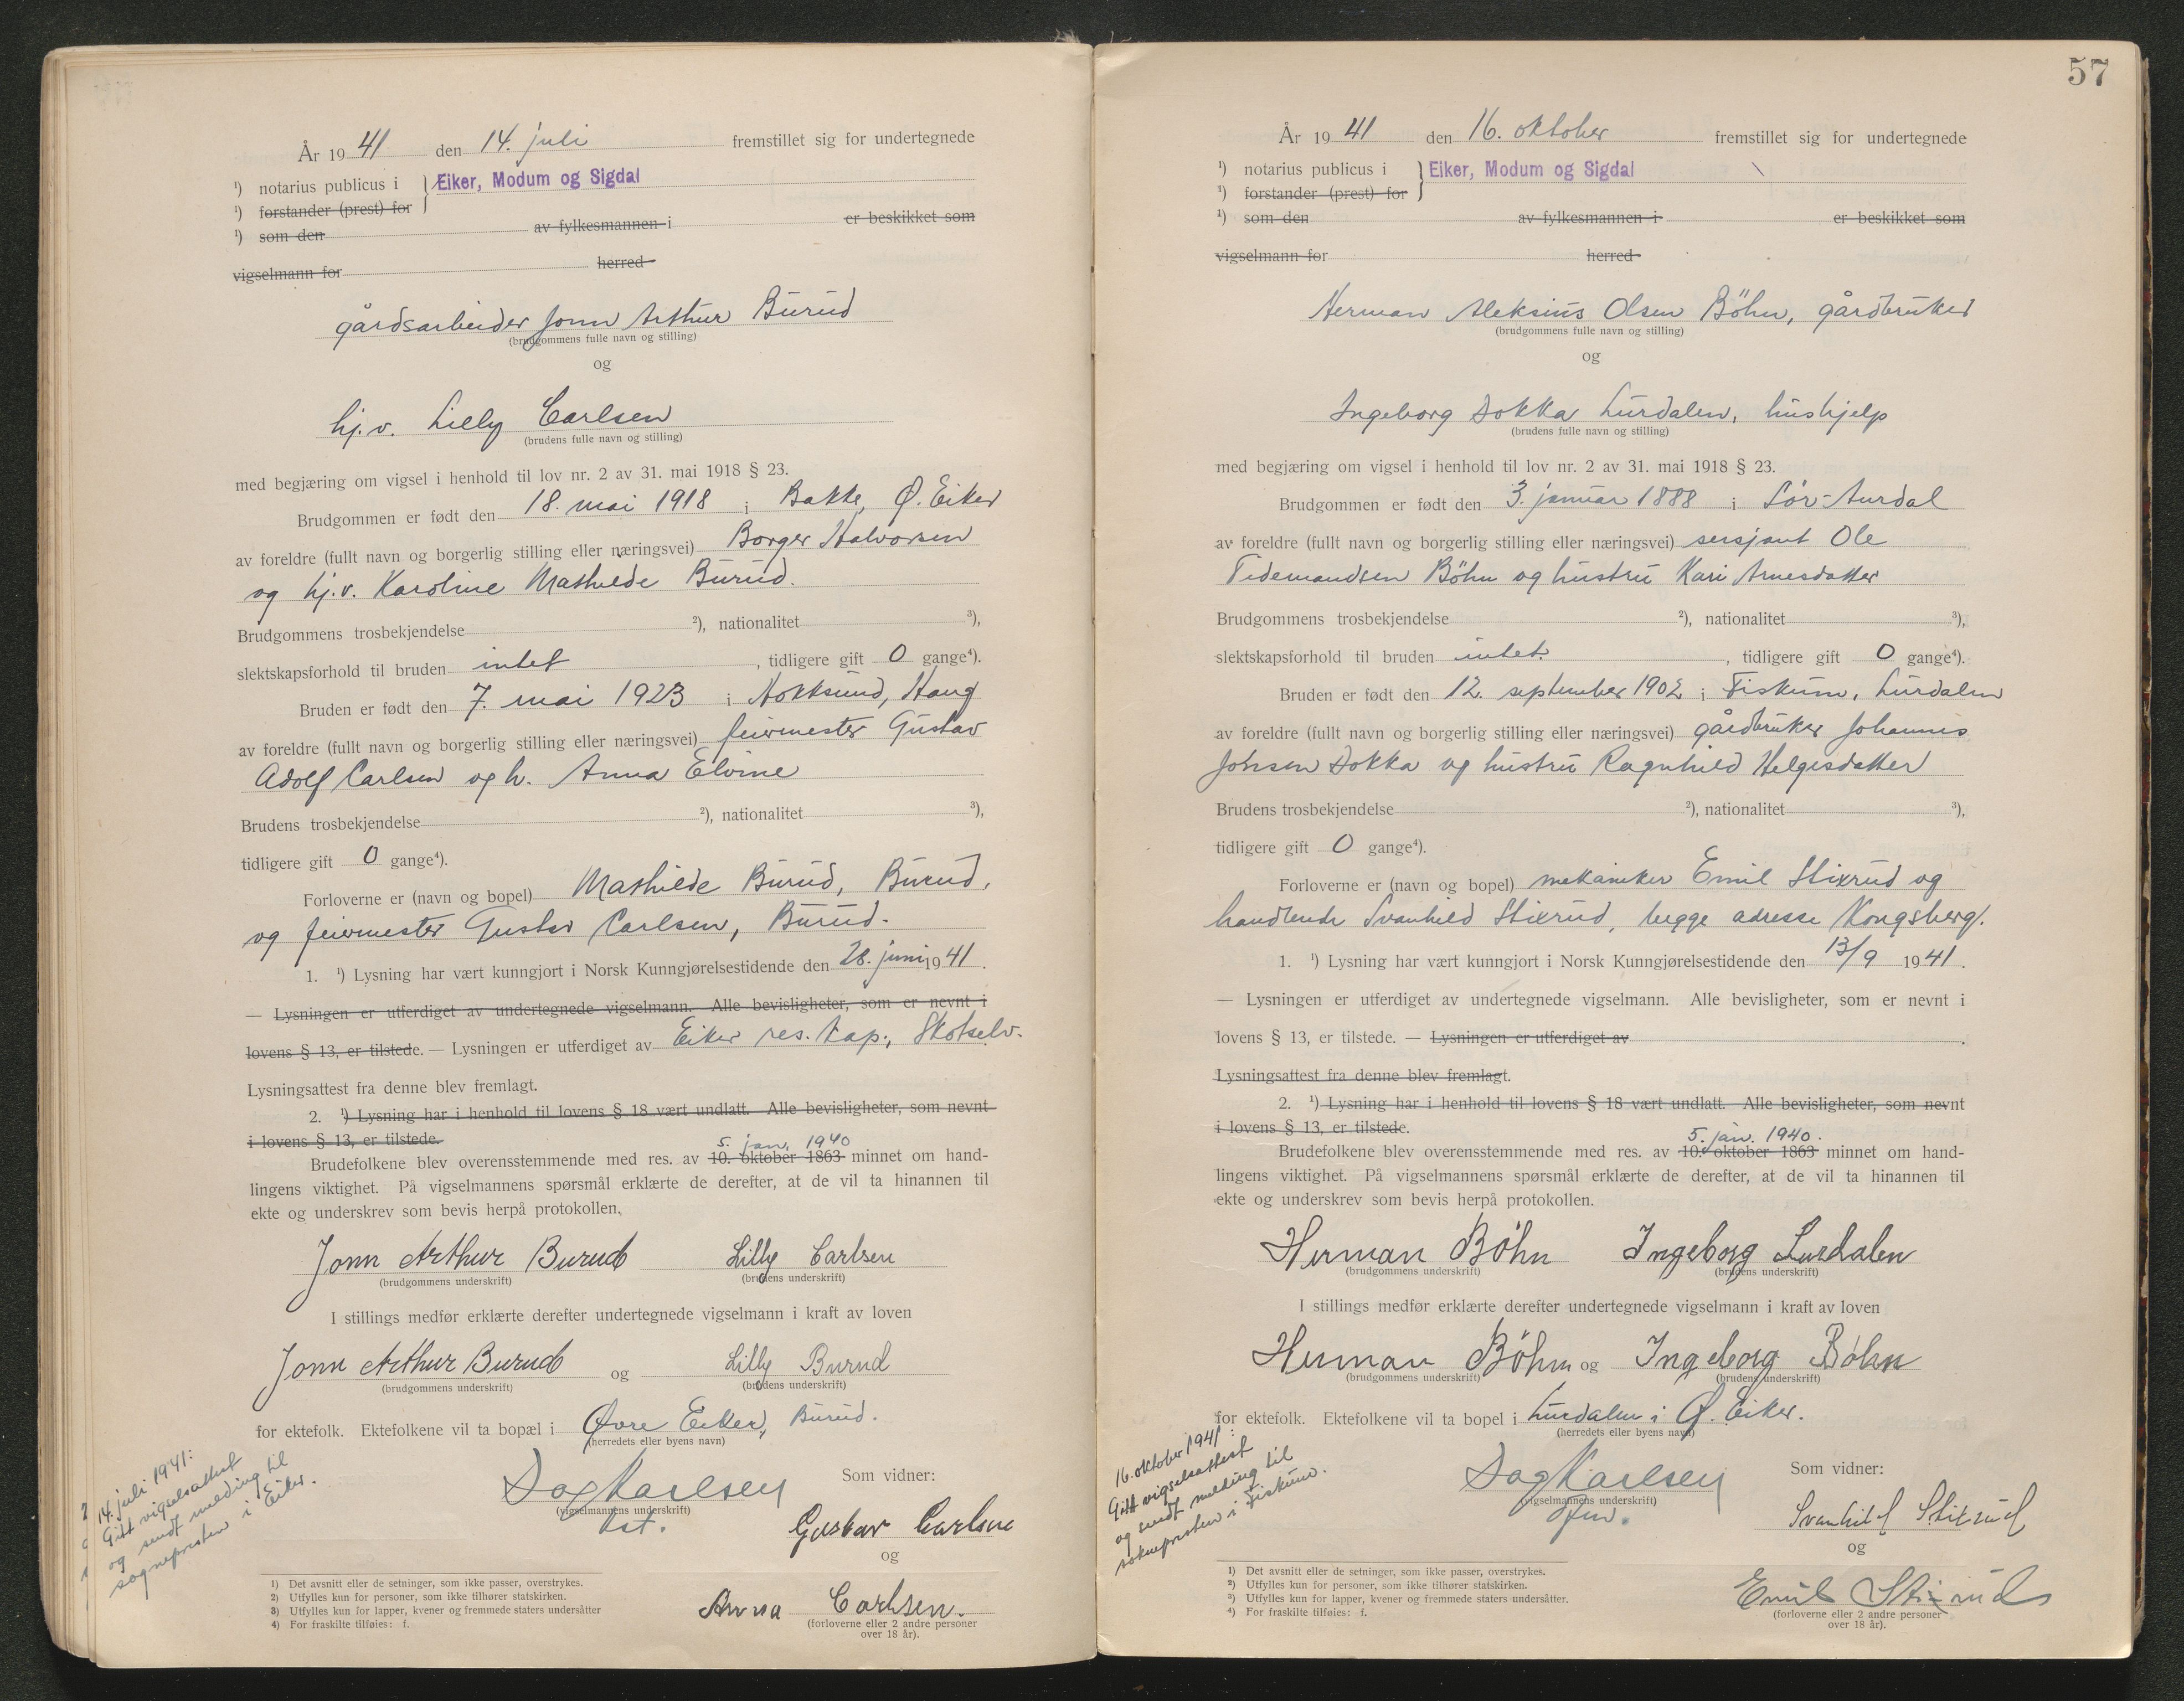 År 19 41 den 14. juli fremstillet sig for undertegnede
¹) notarius publicus i } Eiker, Modum og Sigdal
¹) forstander (prest) for
¹) som den av fylkesmannen i er beskikket som
vigselmann for herred
gårdsarbeider Jonn Arthur Burud
(brudgommens fulle navn og stilling)
og
hj.v. Lilly Carlsen
(brudens fulle navn og stilling)
med begjæring om vigsel i henhold til lov nr. 2 av 31. mai 1918 § 23.
Brudgommen er født den 18. mai 1918 i Bakke, Ø. Eiker
av foreldre (fullt navn og borgerlig stilling eller næringsvei) Borger Halvorsen
og hj.v. Karoline Mathilde Burud.
Brudgommens trosbekjendelse ²), nationalitet ³),
slektskapsforhold til bruden intet, tidligere gift 0 gange⁴).
Bruden er født den 7. mai 1923 i Hokksund, Haug
av foreldre (fullt navn og borgerlig stilling eller næringsvei) feiermester Gustav
Adolf Carlsen og h. Anna Elvine
Brudens trosbekjendelse ²), nationalitet ³),
tidligere gift 0 gange⁴).
Forloverne er (navn og bopel) Mathilde Burud, Burud,
og feiermester Gustav Carlsen, Burud.
1. ¹) Lysning har vært kunngjort i Norsk Kunngjørelsestidende den 28. juni 1941.
— Lysningen er utferdiget av undertegnede vigselmann. Alle bevisligheter, som er nevnt i
lovens § 13, er tilstede. — Lysningen er utferdiget av Eiker res. kap., Skotselv.
Lysningsattest fra denne blev fremlagt.
2. ¹) Lysning har i henhold til lovens § 18 vært undlatt. Alle bevisligheter, som nevnt
i lovens § 13, er tilstede.
5. jan. 1940
Brudefolkene blev overensstemmende med res. av 10. oktober 1863 minnet om hand-
lingens viktighet. På vigselmannens spørsmål erklærte de derefter, at de vil ta hinannen til
ekte og underskrev som bevis herpå protokollen.
Jonn Arthur Burud Lilly Carlsen
(brudgommens underskrift) (brudens underskrift)
I stillings medfør erklærte derefter undertegnede vigselmann i kraft av loven
Jonn Arthur Burud og Lilly Burud
(brudgommens underskrift) (brudens underskrift)
for ektefolk. Ektefolkene vil ta bopæl i Øvre Eiker, Burud.
(herredets eller byens navn)
14. juli 1941:
Gitt vigselsattest
og sendt melding til
sognepresten i Eiker.
Dag Karlsen
(vigselmannens underskrift)
Som vidner:
Gustav Carlsen
og
Anna Carlsen.
(forloverne eller 2 andre personer
over 18 år).
1) Det avsnitt eller de setninger, som ikke passer, overstrykes.
2) Utfylles kun for personer, som ikke tilhører statskirken.
3) Utfylles kun for lapper, kvener og fremmede staters undersåtter
4) For fraskilte tilføies: f.
57
År 19 41 den 16. oktober fremstillet sig for undertegnede
¹) notarius publicus i } Eiker, Modum og Sigdal
¹) forstander (prest) for
¹) som den av fylkesmannen i er beskikket som
vigselmann for herred
Herman Aleksius Olsen Böhn, gårdbruker
(brudgommens fulle navn og stilling)
og
Ingeborg Dokka Lurdalen, hushjelp
(brudens fulle navn og stilling)
med begjæring om vigsel i henhold til lov nr. 2 av 31. mai 1918 § 23.
Brudgommen er født den 3. januar 1888 i Sör-Aurdal
av foreldre (fullt navn og borgerlig stilling eller næringsvei) sersjant Ole
Tidemandsen Böhn og hustru Kari Arnesdatter
Brudgommens trosbekjendelse ²), nationalitet ³),
slektskapsforhold til bruden intet, tidligere gift 0 gange⁴).
Bruden er født den 12. september 1902 i Fiskum, Lurdalen
av foreldre (fullt navn og borgerlig stilling eller næringsvei) gårdbruker Johannes
Johsen Dokka og hustru Ragnhild Helgesdatter
Brudens trosbekjendelse ²), nationalitet ³),
tidligere gift 0 gange⁴).
Forloverne er (navn og bopel) mekaniker Emil Stixrud og
handlende Svanhild Stixrud, begge adresse Kongsberg.
1. ¹) Lysning har vært kunngjort i Norsk Kunngjørelsestidende den 13/9 1941.
— Lysningen er utferdiget av undertegnede vigselmann. Alle bevisligheter, som er nevnt i
lovens § 13, er tilstede. — Lysningen er utferdiget av .
Lysningsattest fra denne blev fremlagt.
2. ¹) Lysning har i henhold til lovens § 18 vært undlatt. Alle bevisligheter, som nevnt
i lovens § 13, er tilstede.
5. jan. 1940.
Brudefolkene blev overensstemmende med res. av 10. oktober 1863 minnet om hand-
lingens viktighet. På vigselmannens spørsmål erklærte de derefter, at de vil ta hinannen til
ekte og underskrev som bevis herpå protokollen.
Herman Böhn Ingeborg Lurdalen
(brudgommens underskrift) (brudens underskrift)
I stillings medfør erklærte derefter undertegnede vigselmann i kraft av loven
Herman Böhn og Ingeborg Böhn
(brudgommens underskrift) (brudens underskrift)
for ektefolk. Ektefolkene vil ta bopel i Lurdalen i Ø. Eiker.
(herredets eller byens navn)
16. oktober 1941:
Gitt vigselsattest
og sendt melding til
sokneprsten i Fiskum.
Dag Karlsen
(vigselmannens underskrift)
Som vidner:
Svanhild Stixrud
og
Emil Stixrud
(forloverne eller 2 andre personer
over 18 år).
1) Det avsnitt eller de setninger, som ikke passer, overstrykes.
2) Utfylles kun for personer, som ikke tilhører statskirken.
3) Utfylles kun for lapper, kvener og fremmede staters undersåtter.
4) For fraskilte tilføies: f.